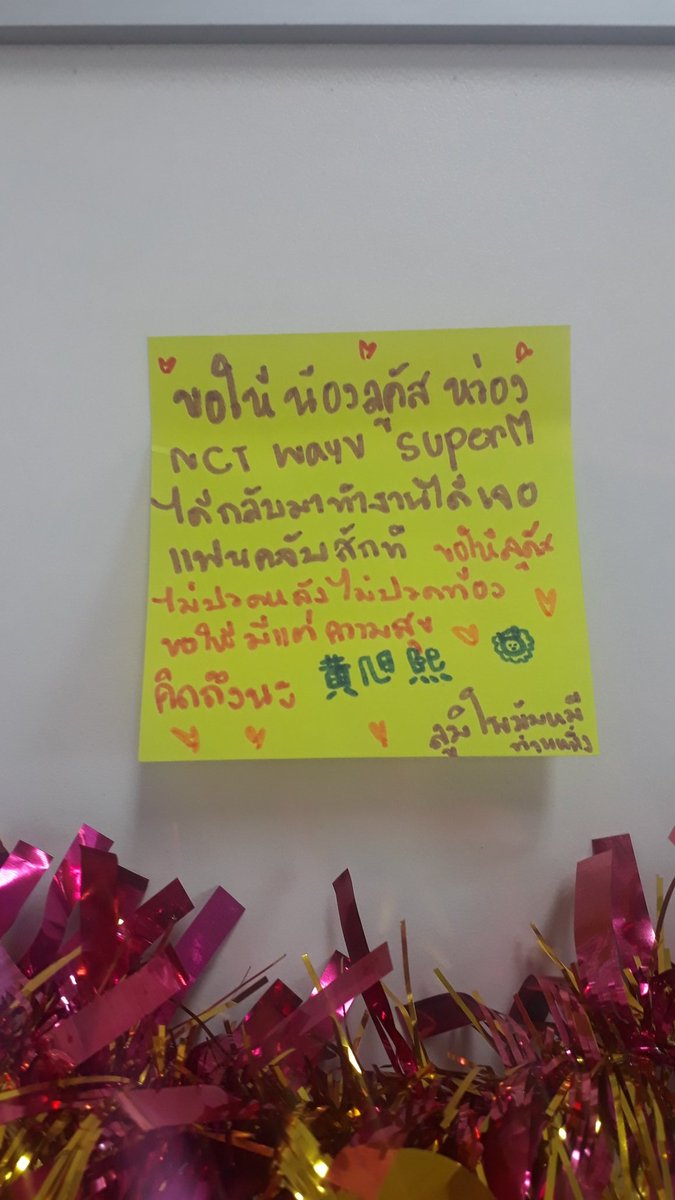 ขอให้น้องลูคัส หว่อง
NCT WAYV SuperM
ได้กลับมาทำงานได้เจอ
แฟนคลับสักที ขอให้ลูคัส
ไม่ปวดหลังไม่ปวดท้อง
ขอให้มีแต่ความสุข
คิดถึงนะ 黄旭熙